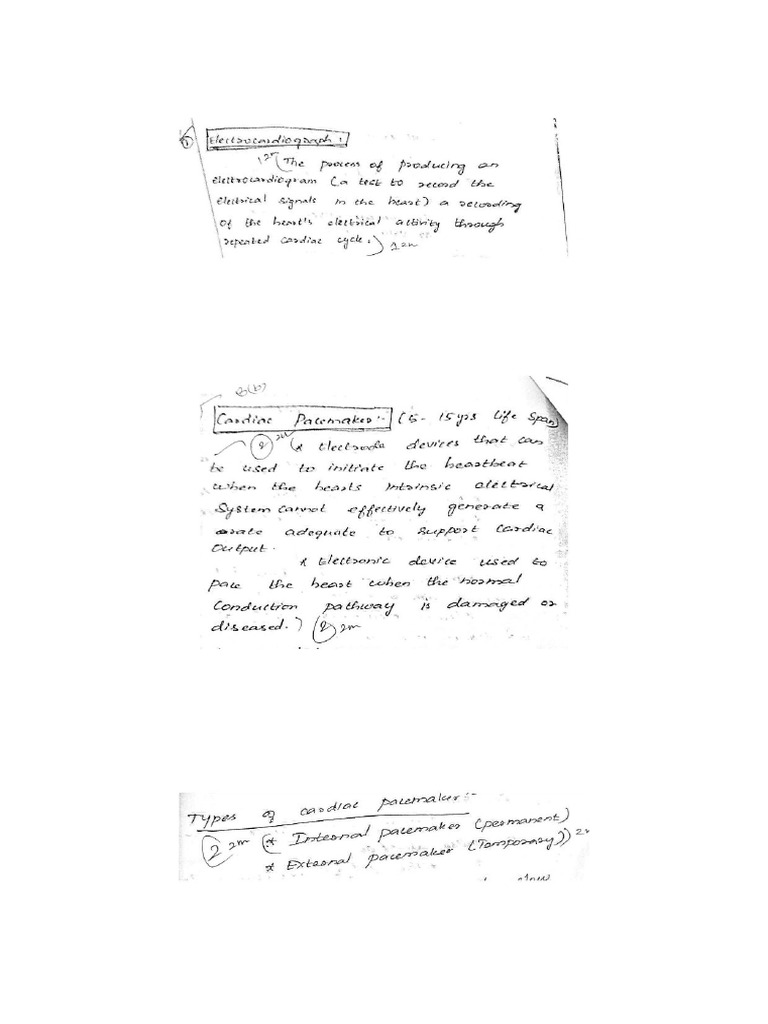 Electrocardiograph:
(The process of producing an
electrocardiogram (a test to record the
electrical signals in the heart) a recording
of the heart's electrical activity through
repeated cardiac cycle.) 2m
6(b)
Cardiac Pacemaker:- (5-15yrs life span)
② 2m (* Electrode devices that can
be used to initiate the heartbeat
when the hearts intrinsic electrical
System cannot effectively generate a
rate adequate to support cardiac
output.
* Electronic device used to
pace the heart when the normal
conduction pathway is damaged or
diseased.) ② 2m
Types of cardiac pacemaker:-
② 2m (* Internal pacemaker (permanent)
* External pacemaker (Temporary))